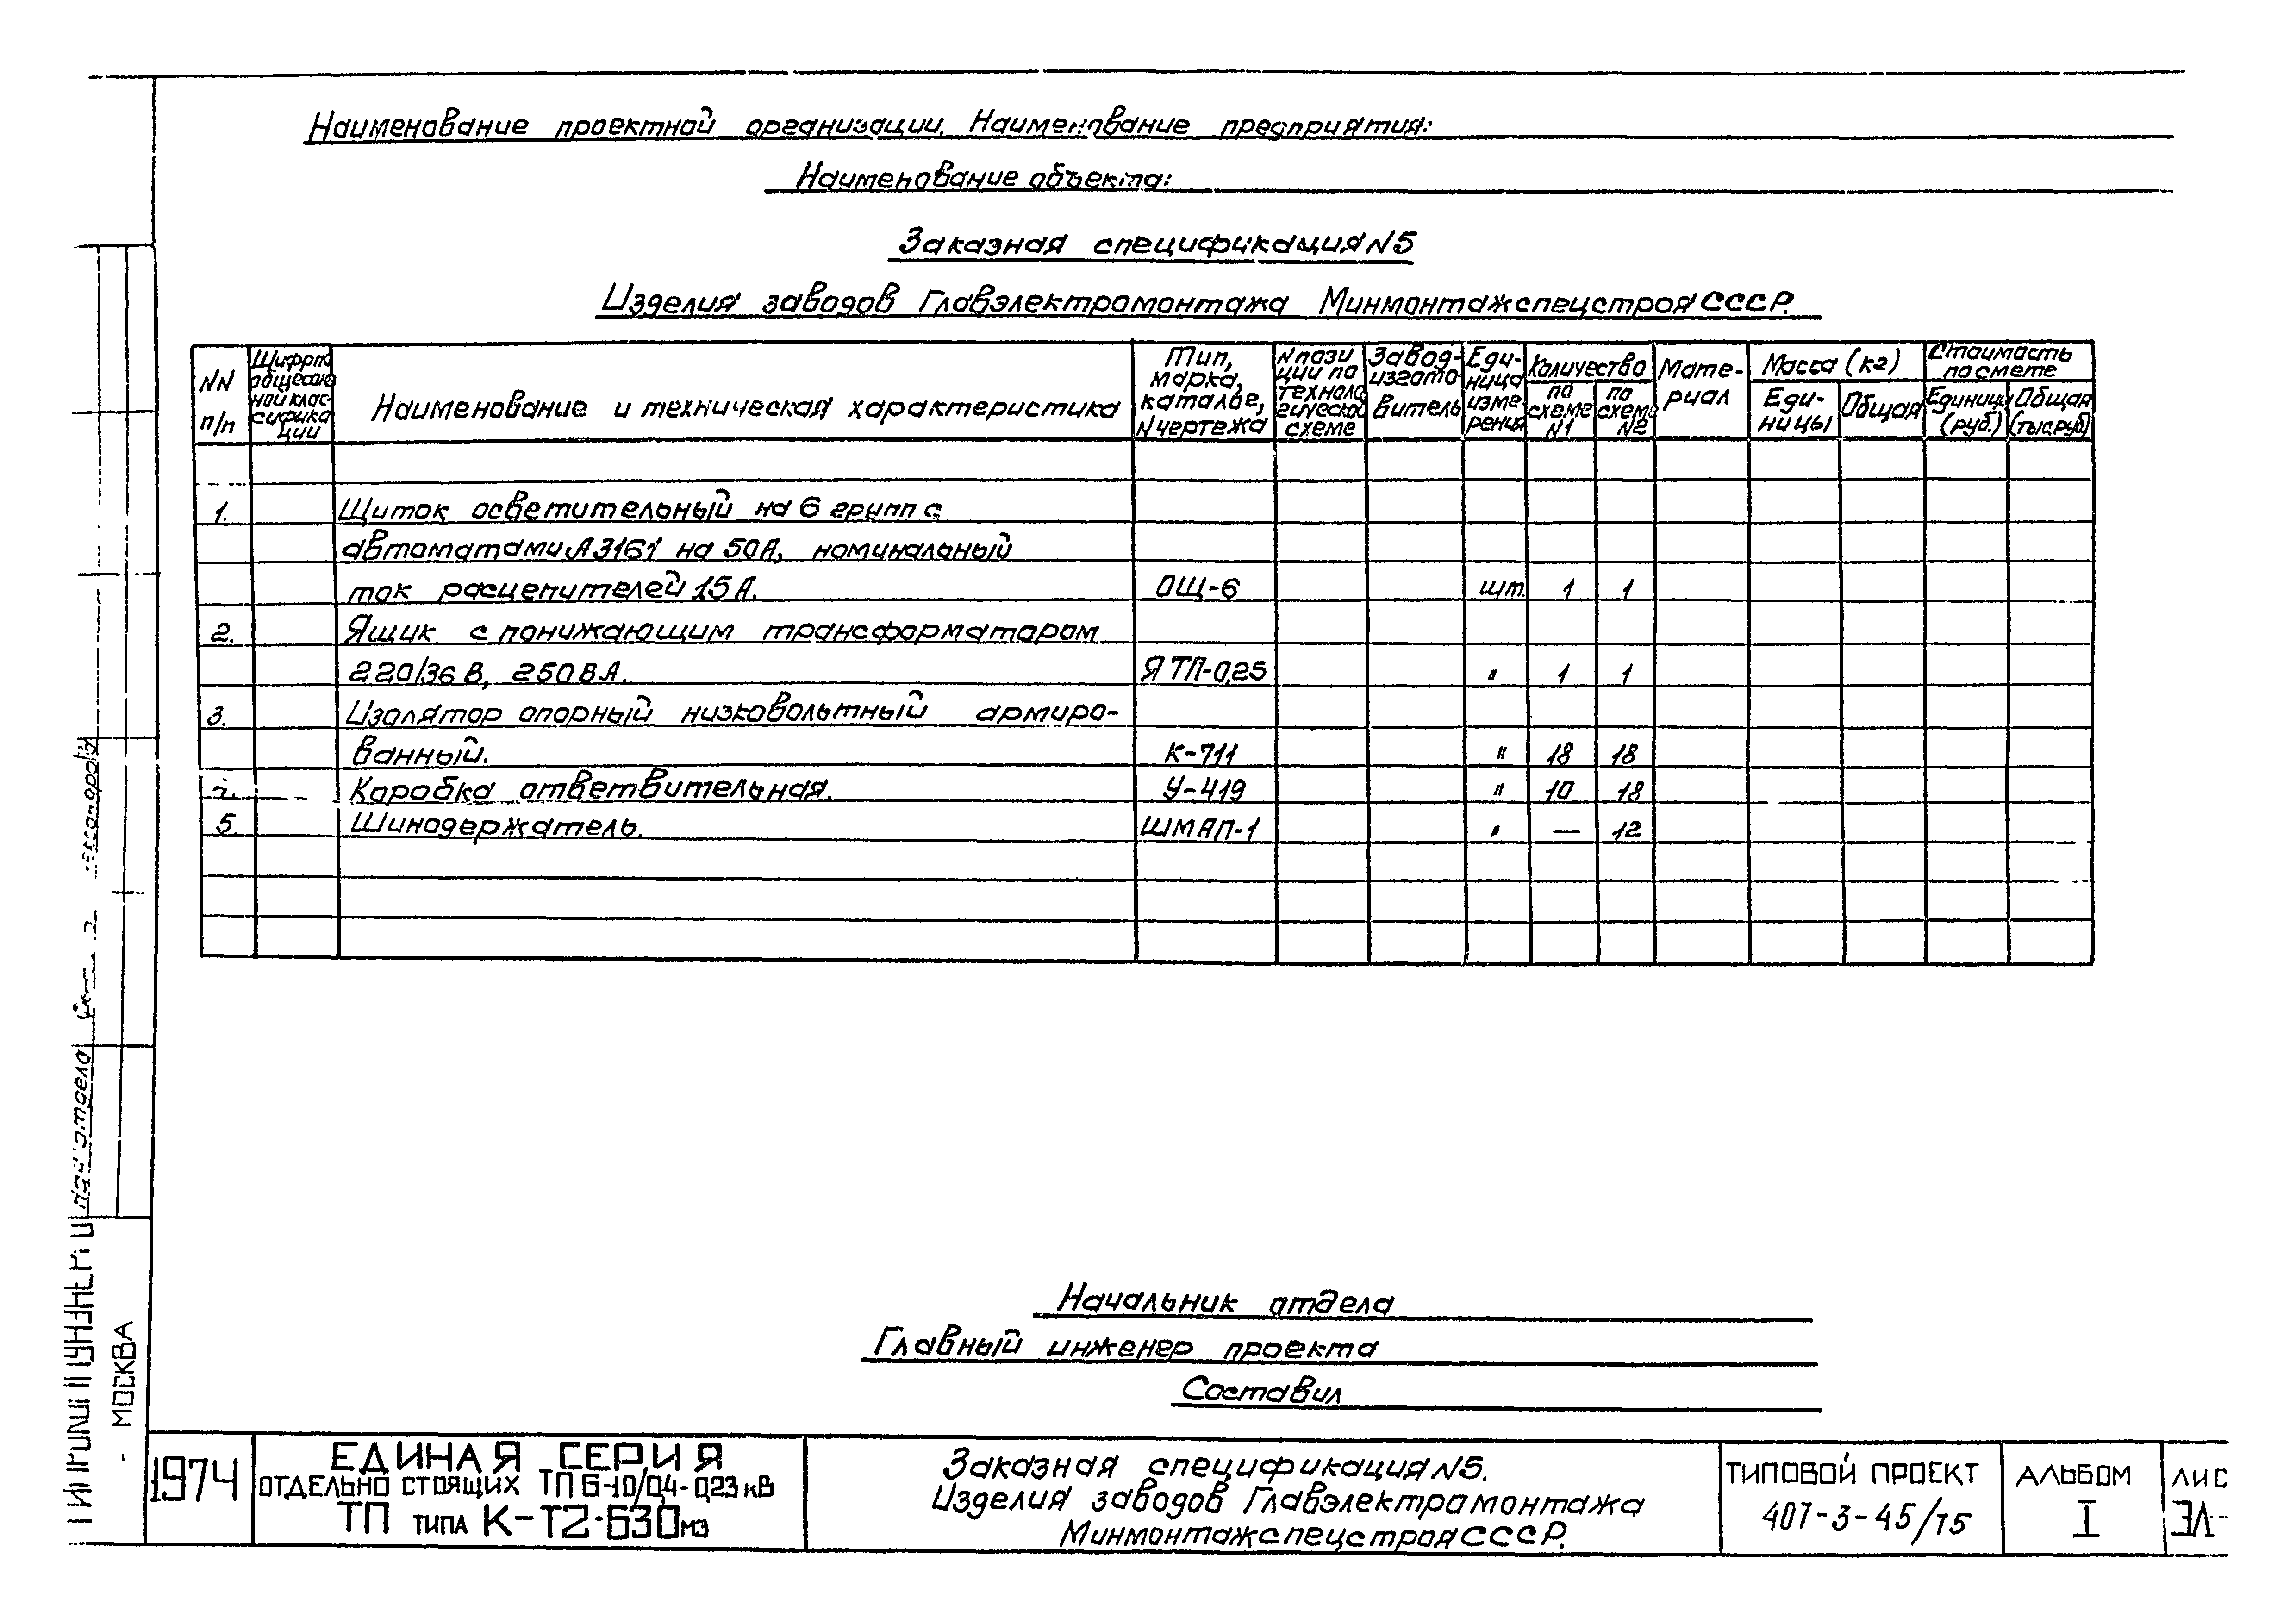 Наименование проектной организации. Наименование предприятия:
Наименование объекта:
Заказная спецификация N5
Изделия заводов Главэлектромонтажа Минмонтажспецстроя СССР.
NN п/п
Шифр по общесоюзной классификации
Наименование и техническая характеристика
Тип, марка, каталог, N чертежа
N позиции по технологической схеме
Завод-изготовитель
Единица измерения
Количество
по схеме N1
по схеме N2
Материал
Масса (кг)
Единицы
Общая
Стоимость по смете
Единицы (руб.)
Общая (тыс.руб)
1. Щиток осветительный на 6 групп с
автоматами А3161 на 50А, номинальный
ток расцепителей 15А. ОЩ-6 шт. 1 1
2. Ящик с понижающим трансформатором
220/36В, 250ВА. ЯТП-0,25 " 1 1
3. Изолятор опорный низковольтный армиро-
ванный. К-711 " 18 18
4. Коробка ответвительная. У-419 " 10 18
5. Шинодержатель. ШМАП-1 " — 12
Начальник отдела
Главный инженер проекта
Составил
МОСКВА
1974
ЕДИНАЯ СЕРИЯ
ОТДЕЛЬНО СТОЯЩИХ ТП 6-10/0,4-0,23 кВ
ТП ТИПА К-Т2-630 МЭ
Заказная спецификация N5.
Изделия заводов Главэлектромонтажа
Минмонтажспецстроя СССР.
ТИПОВОЙ ПРОЕКТ
407-3-45/75
АЛЬБОМ
I
ЛИС
ЭЛ-